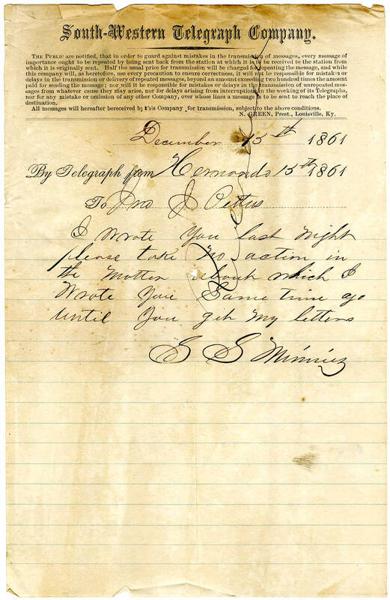 South-Western Telegraph Company.
THE PUBLIC are notified, that in order to guard against mistakes in the transmission of messages, every message of
importance ought to be repeated by being sent back from the station at which it is to be received to the station from
which it is originally sent. Half the usual price for transmission will be charged for repeating the message, and while
this company will, as heretofore, use every precaution to ensure correctness, it will not be responsible for mistakes or
delays in the transmission or delivery of repeated messages, beyond an amount exceeding two hundred times the amount
paid for sending the message; nor will it be responsible for mistakes or delays in the transmission of unrepeated messages
from whatever cause they may arise, nor for delays arising from interruptions in the working of its Telegraphs,
nor for any mistake or omission of any other Company, over whose lines a message is to be sent to reach the place of
destination.
All messages will hereafter be received by this Company for transmission, subject to the above conditions.
N. GREEN, Prest., Louisville, Ky.
December 15th 1861
By Telegraph from 15th 1861
To Jno J Pettus
I wrote You last night
please take no action in
the Matter about which I
Wrote You Some time ago
until You get my letters